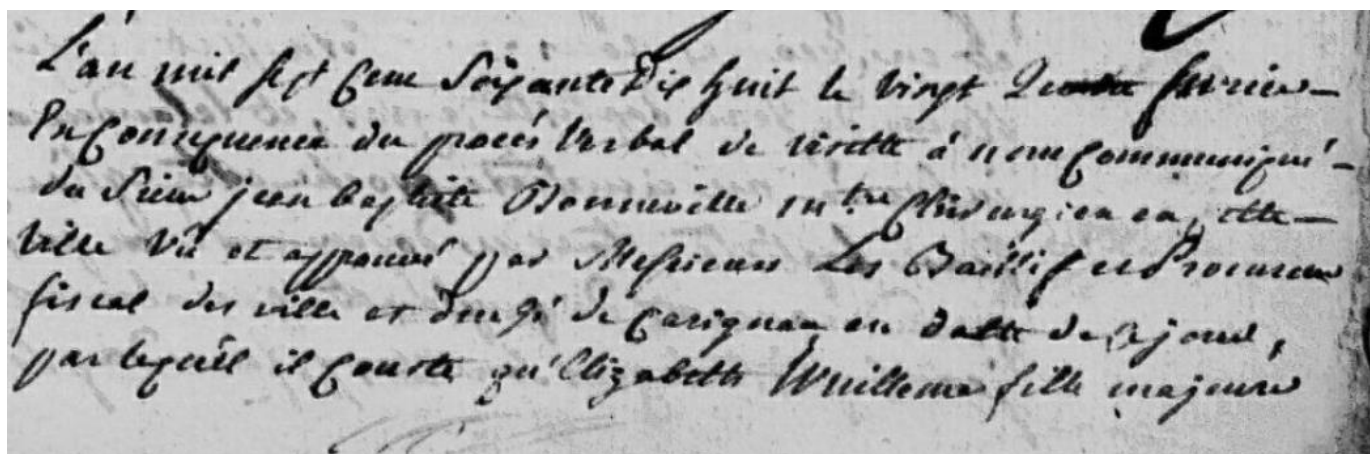 L'an mil sept cent soixante dix huit le vingt quatre fevrier
En Consequence du procés Verbal de visitte à nous Communiqué
du Sieur jean baptiste Bonneville m.tre Chirurgien en cette
Ville Vu et approuvé par Messieurs Les Baillif et Procureur
fiscal des ville et duché de Carignan en datte de ce jour,
par lequel il Conste qu'Elizabeth Wuilleme fille majeure